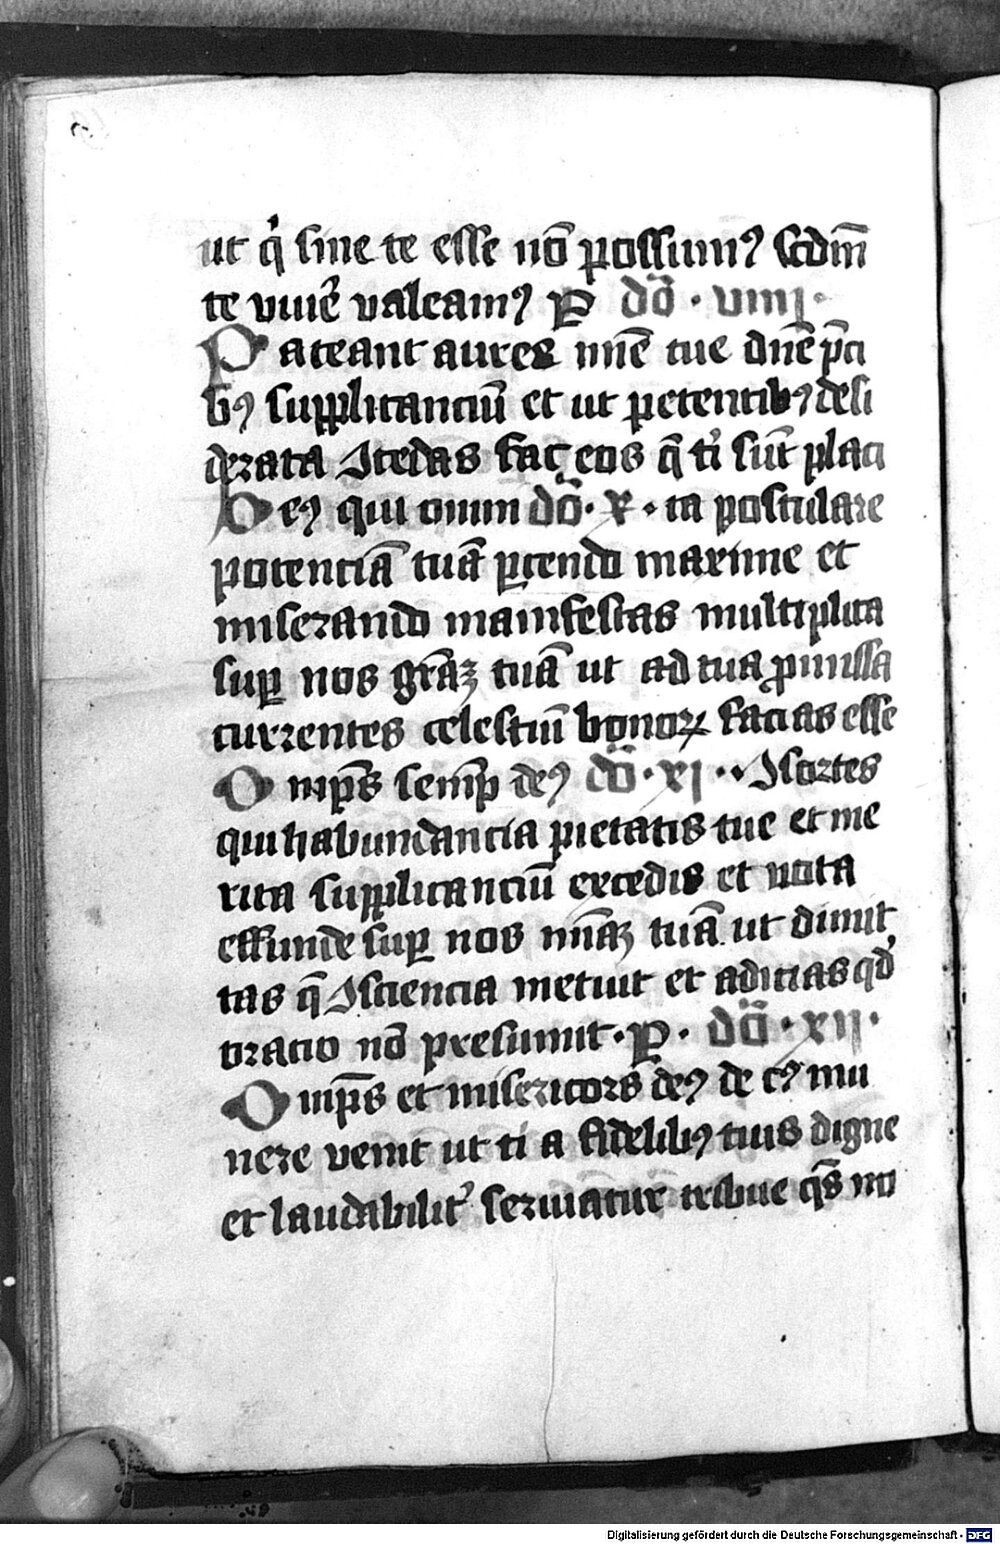 ut q̇ sine te esse nō possumꝰ scdm̄
te viuē valeamꝰ P dō · viiij ·
Pateant aures mīe tue dn̄e p̄ci
bꝰ supplicanciū et ut petentibꝰ desi
derata ꝯcedas fac eos q̄ ti sūt placi
Deꝰ qui omni dō · x · ta postulare
potenciā tuā ꝑcendo maxime et
miserando manifestas multiplica
suꝑ nos grāꝫ tuā ut ad tua ꝓmissa
currentes celestiū bonoꝝ facias esse
Omp̄s semp̄ deꝰ dō · xi · ꝯsortes
qui habundancia pietatis tue et me
rita supplicanciū excedis et uota
effunde suꝑ nos mīaꝫ tuā ut dimit
tas q̄ ꝯsciencia metuit et adicias qd̄
oracio nō presumit · P · dō · xij ·
Omp̄s et misericors deꝰ de cꝰ mu
nere venit ut ti a fidelibꝰ tuis digne
et laudabilit̾ seruiatur tribue qs̄ no
Digitalisierung gefördert durch die Deutsche Forschungsgemeinschaft - DFG